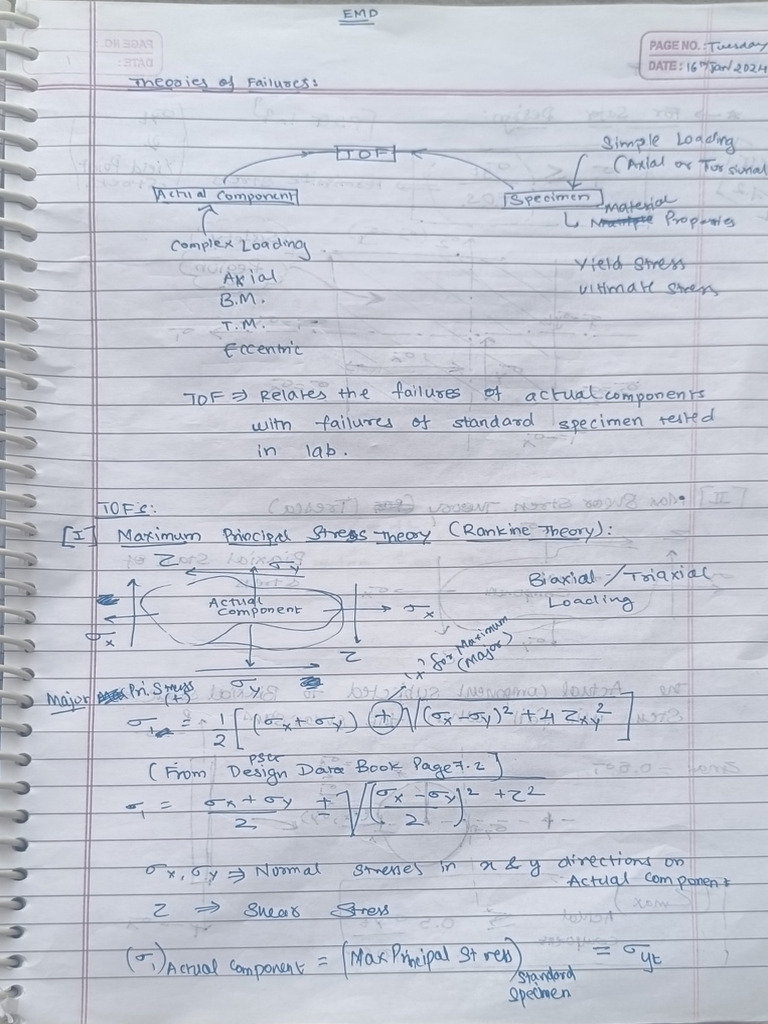 EMD
PAGE NO.: Tuesday
DATE: 16th Jan 2024
Theories of Failures:
TOF
Simple Loading
(Axial or Torsional
Actual Component
Specimen
Material
Properies
Complex Loading
Axial
B.M.
T.M.
Eccentric
Yield stress
ultimate stress
TOF ⇒ Relates the failures of actual components
with failures of standard specimen tested
in lab.
TOFs:
[I] Maximum Principal Stress Theory (Rankine Theory):
τ σy
Actual
Component
σx
σx
σy
τ
Biaxial / Triaxial
Loading
for Maximum
(Major)
Major Pri. Stress
(+)
σ1 = 1/2 [(σx + σy) + √(σx - σy)² + 4 τxy²]
(From PSG Design Data Book Page 7.2]
σ1 = (σx + σy)/2 ± √((σx - σy)/2)² + τ²
σx, σy ⇒ Normal stresses in x & y directions on
Actual component
τ ⇒ Shear Stress
(σ1) Actual component = (Max Principal Stress) standard specimen = σyt